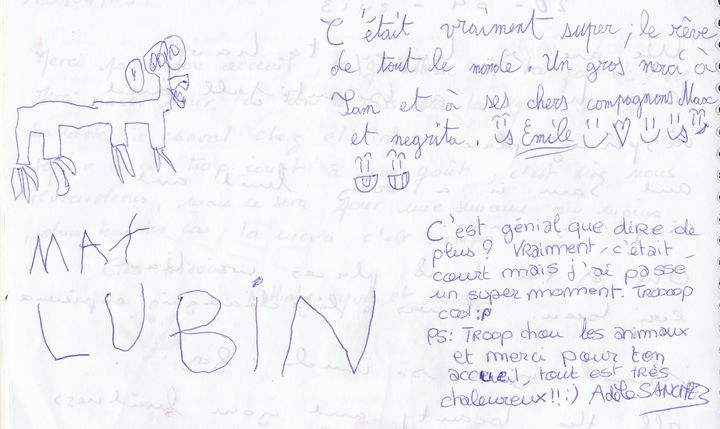 C'était vraiment super, le rêve
de tout le monde. Un gros merci à
Sam et à ses chers compagnons Max
et negrita. Emile
MAX
LUBiN
C'est génial que dire de
plus? Vraiment, c'était
court mais j'ai passe
un super moment. Trooop
cool :p
PS: Troop chou les animaux
et merci pour ton
accueil, tout est très
chaleureux!! :) Adèle SANCHEZ